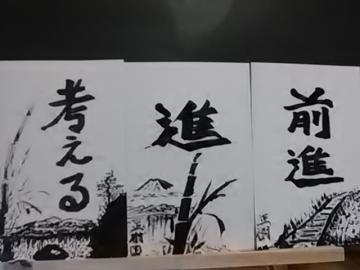 考える
進
前進